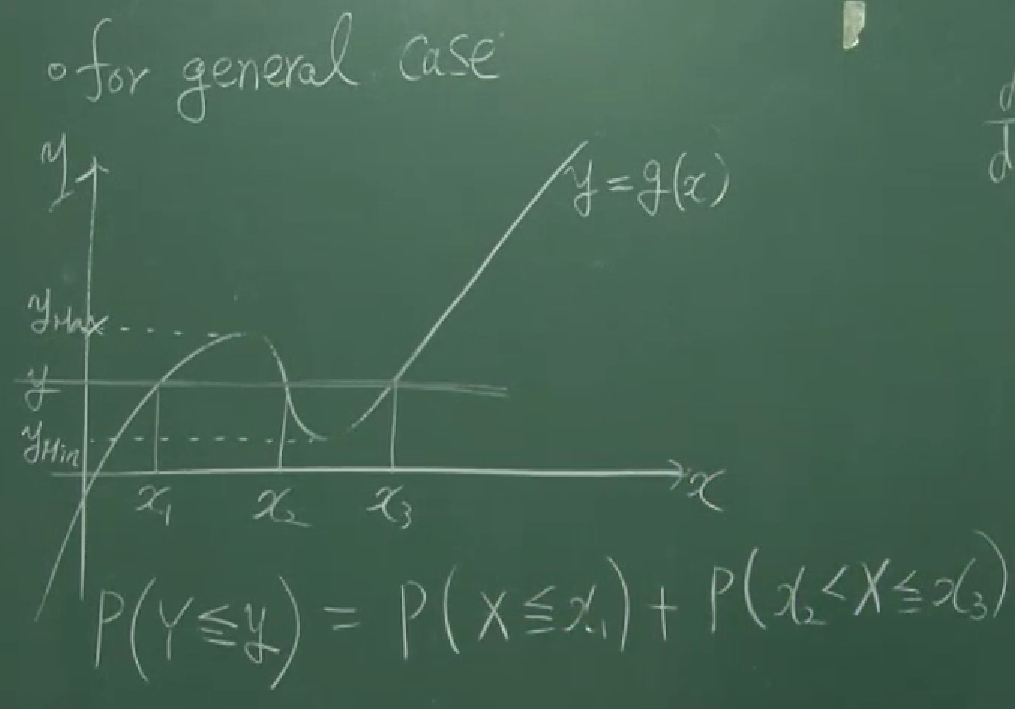 ∘ for general case
y
y = g(x)
y_Max
y
y_Min
x₁ x₂ x₃ x
P(Y ≦ y) = P(X ≦ x₁) + P(x₂ < X ≦ x₃)